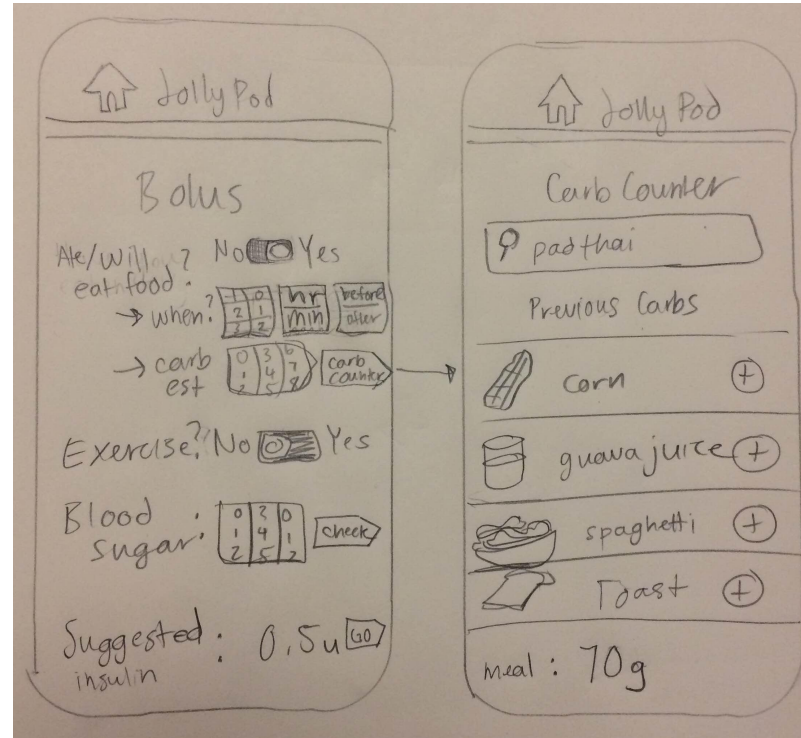 Jolly Pod
Bolus
Ate/Will eat food? : No Yes
→ when? -1 0 hr before
2 1 min after
3 2
→ carb est 0 3 6 carb counter
1 4 7
2 5 8
Exercise? No Yes
Blood sugar : 0 3 0 check
1 4 1
2 5 2
Suggested insulin : 0.5u GO
Jolly Pod
Carb Counter
pad thai
Previous Carbs
corn +
guava juice +
spaghetti +
Toast +
meal : 70g